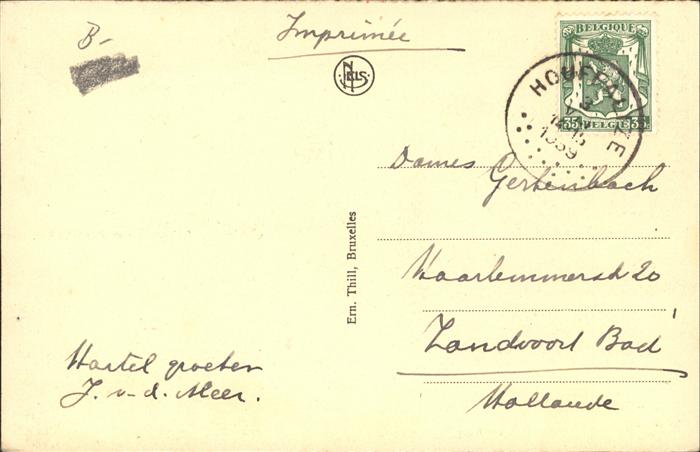 B-
Imprimée
NELS
BELGIQUE
35 BELGIË 35
HOUFFALIZE
1939
Dames
Gertenbach
Ern. Thill, Bruxelles
Haarlemmerstr 20
Zandvoort Bad
Hollande
Hartel groeten
J. v. d. Meer.